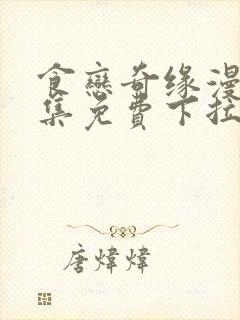 食戀奇缘漫
集免費下拉
唐煒煒